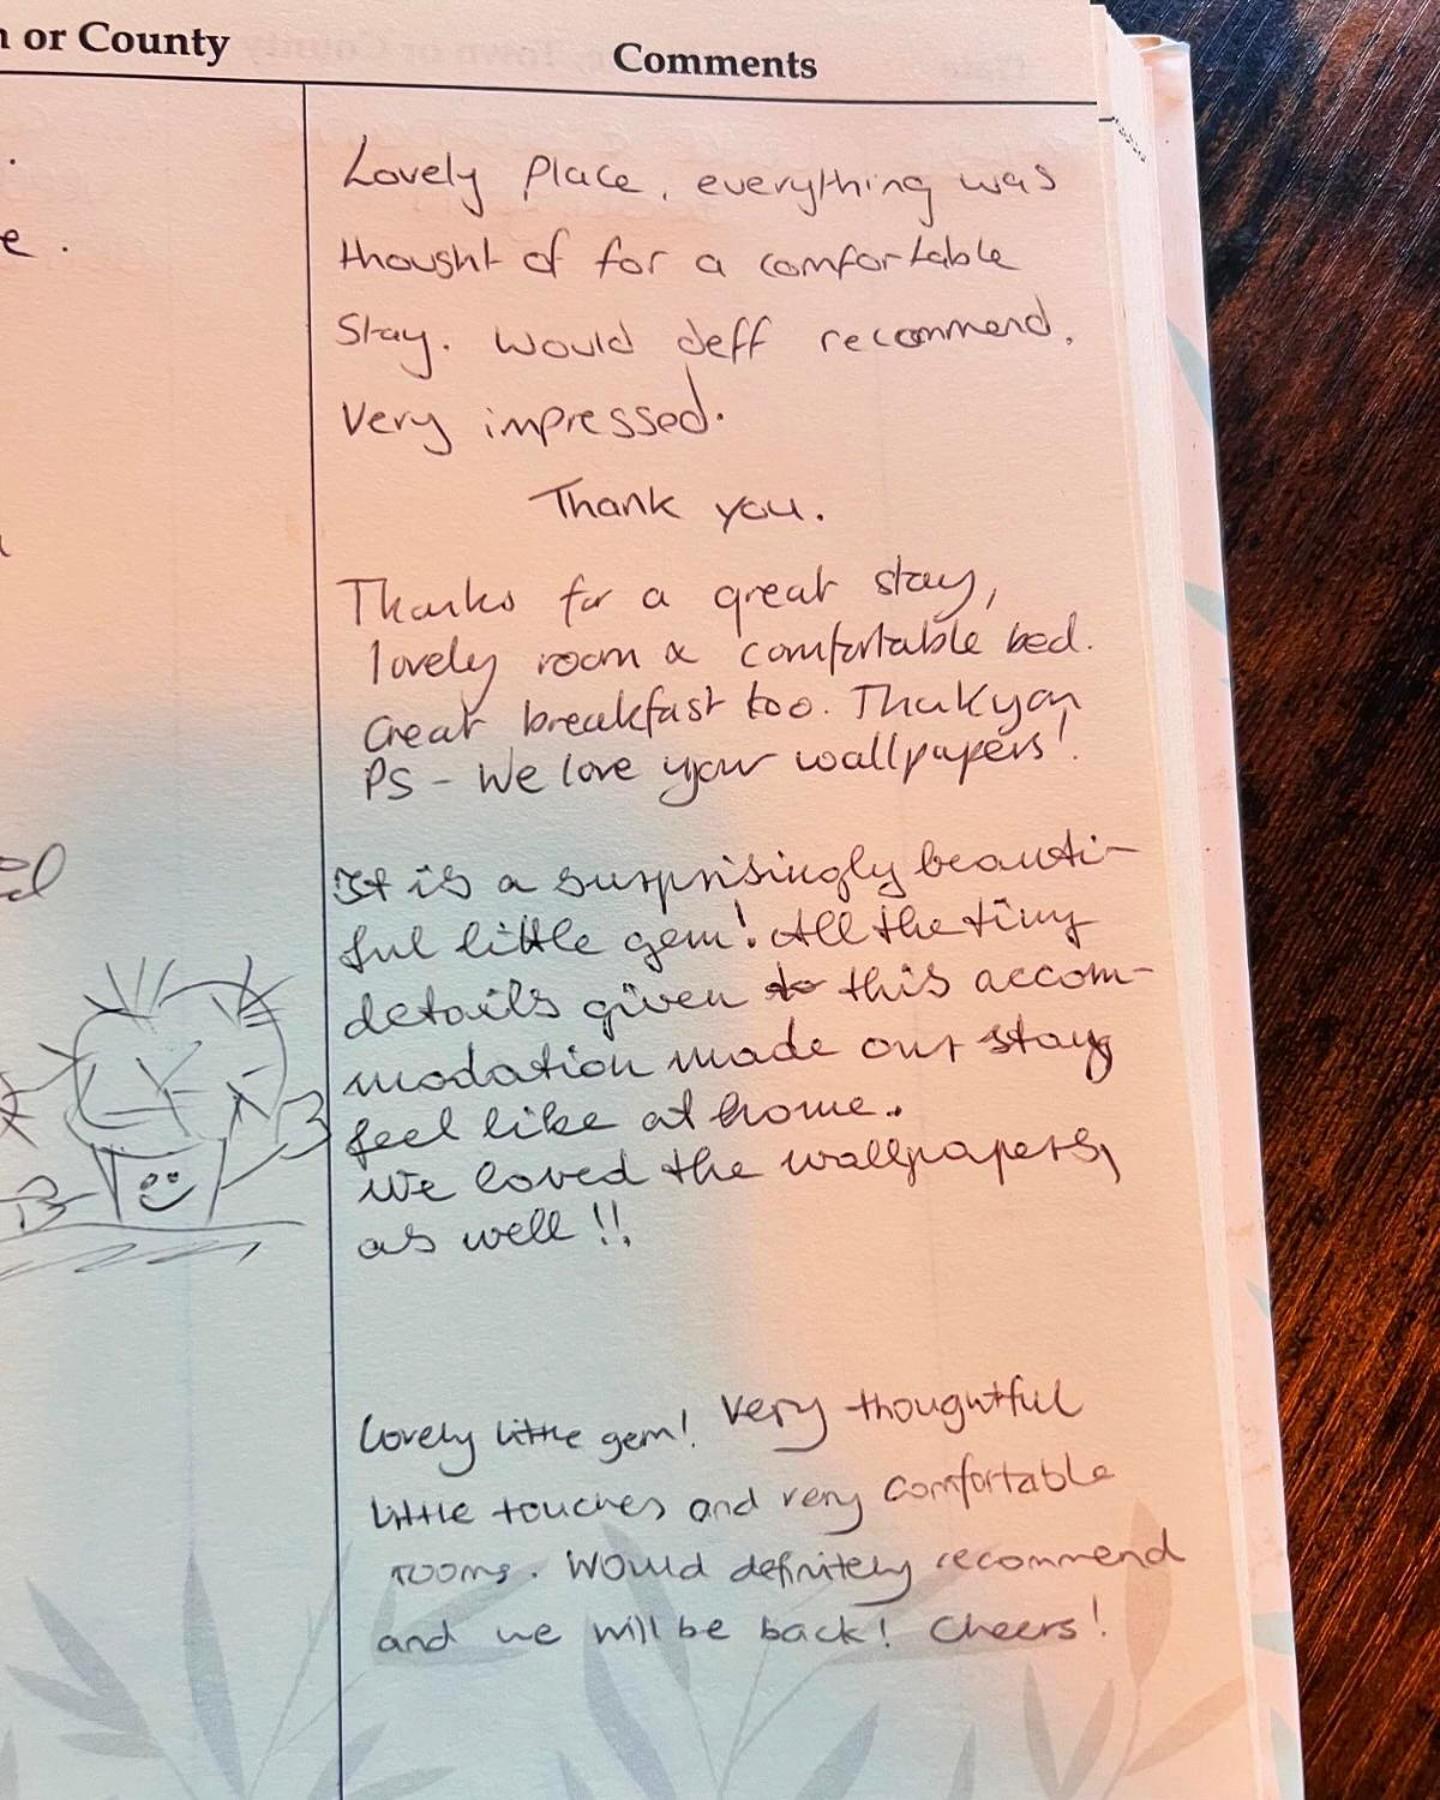 n or County
Comments
Lovely Place, everything was
thought of for a comfortable
Stay. Would deff recommend.
Very impressed.
Thank you.
Thanks for a great stay,
lovely room & comfortable bed.
Great breakfast too. Thank you
PS - We love your wallpapers!
It is a surprisingly beauti-
ful little gem! All the tiny
details given to this accom-
modation made our stay
feel like at home.
We loved the wallpapers,
as well !!
Lovely little gem! Very thoughtful
little touches and very comfortable
rooms. Would definitely recommend
and we will be back! Cheers!